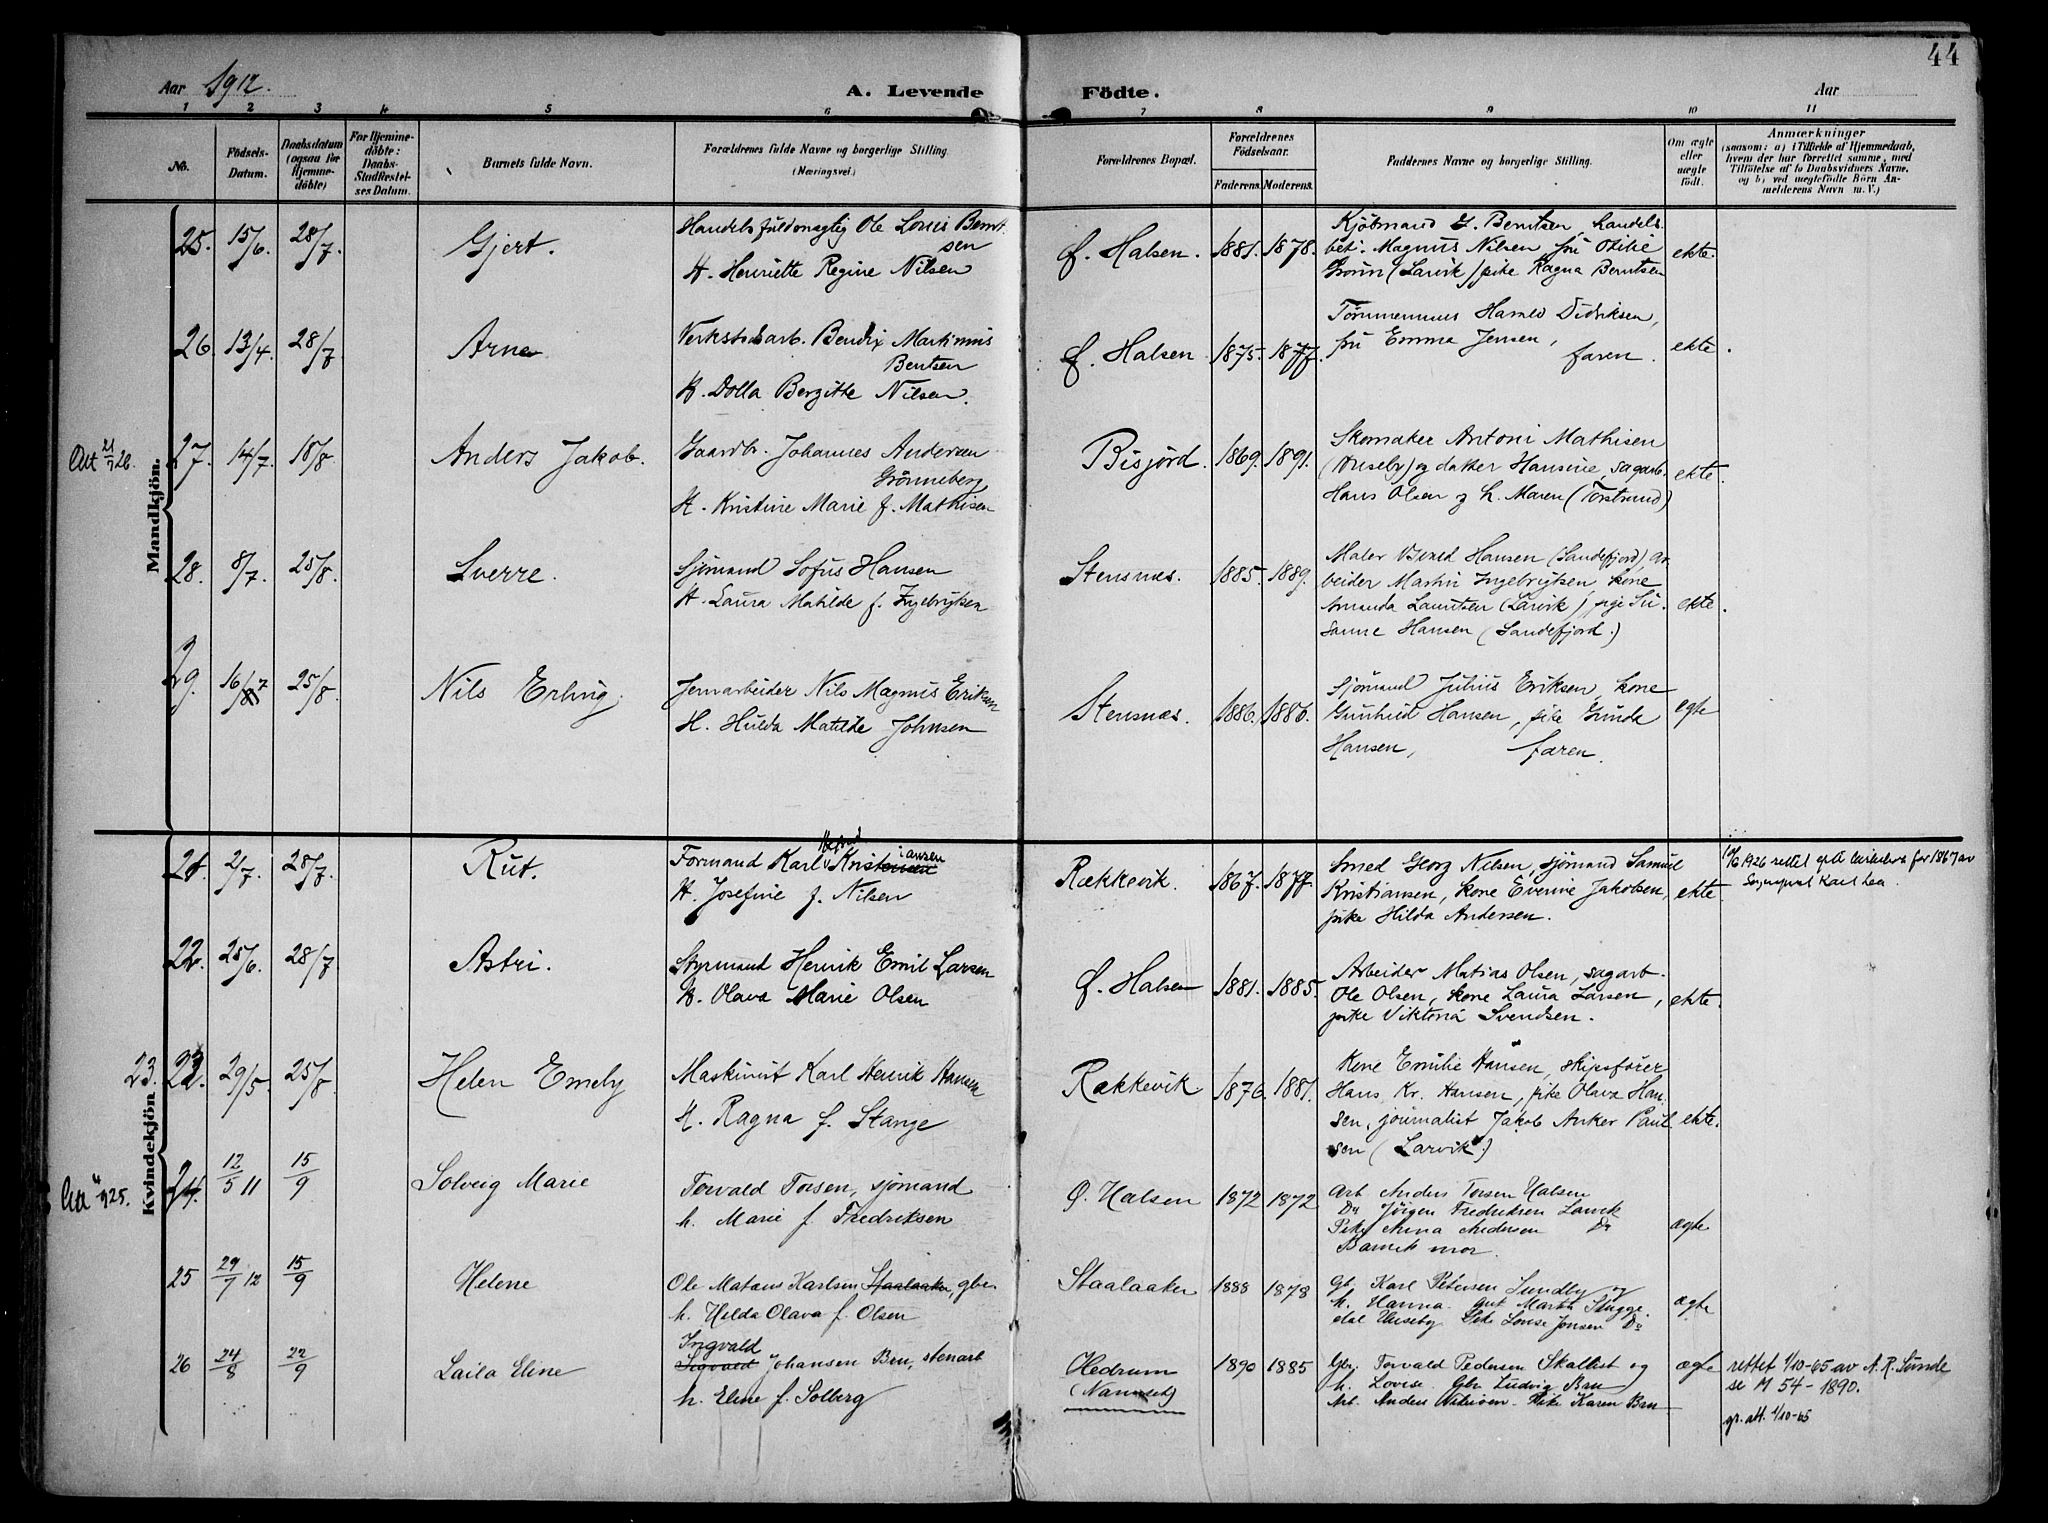 44
Aar 1912.
A. Levende Födte.
Aar
1 2 3 4 5 6 7 8 9 10 11
No.
Födsels-Datum.
Daabsdatum (ogsaa for Hjemmedöbte)
For Hjemmedöbte: Daabs-Stadfestelses Datum.
Barnets fulde Navn.
Forældrenes fulde Navne og borgerlige Stilling.
(Næringsvei.)
Forældrenes Bopæl.
Forældrenes Födselsaar.
Faderens. Moderens.
Faddernes Navne og borgerlige Stilling.
Om ægte eller uægte født.
Anmærkninger
(saasom: a) i Tilfælde af Hjemmedaab, hvem der har forrettet samme, med Tilföielse af to Daabsvidners Navne, og b) ved uægtefödte Börn Anmelderens Navn m. V.)
Mandkjön.
25. 15/6. 28/7. Gjert.
Handelsfuldmægtig Ole Louis Berntsen
H. Henriette Regine Nilsen
Ø. Halsen. 1881. 1878.
Kjöbmand G. Berntsen, handelsbet. Magnus Nilsen fru Otilie
(Larvik) pike Ragna Berntsen
ekte.
26. 13/4. 28/7 Arne
Verkstedsarb. Bendix Martinius
Bentsen
H. Dolla Bergitte Nilsen.
Ø. Halsen 1875. 1877.
Tømmermus Harald Didriksen,
fru Emma Jensen,
faren.
ekte.
27. 14/7. 18/8. Anders Jakob.
Gaardbr. Johannes Andersen
Grönneberg
H. Kristine Marie f. Mathisen
Bisjörd. 1869. 1891.
Skomaker Antoni Mathisen
(Huseby) og datter Hansine, sagarb.
Hans Olsen og h. Maren (Torstrand)
ekte.
28. 8/7. 25/8. Sverre.
Sjømand Sofus Hansen
H. Laura Matilde f. Ingebrigtsen
Stensnæs. 1885. 1889.
Maler Hansen (Sandefjord), arbeider Martin Ingebrigtsen kone
Amanda Lauritsen (Larvik), pige Susanne Hansen (Sandefjord.)
ekte.
29. 16/7 25/8. Nils Erling.
Jernarbeider Nils Magnus Eriksen
H. Hulda Matilde Johnsen
Stensnæs. 1886. 1886.
Sjömand Julius Eriksen, kone
Gunhild Hansen, pike Gunda
Hansen, faren.
egte
Kvindekjön
21. 2/7. 28/7. Rut.
Formand Karl Kristiansen
H. Josefine f. Nilsen
Rækkevik. 1867. 1877.
Smed Georg Nilsen, sjömand Samuel
Kristiansen, kone Evenine Jakobsen,
pike Hilda Andersen.
ekte
1926 rettet efter kirkebok for 1867 av
Sogneprest Karl Lea.
22. 25/6. 28/7. Astri.
Styrmand Henrik Emil Larsen
H. Olava Marie Olsen
Ø. Halsen 1881. 1885.
Arbeider Matias Olsen, sagarb.
Ole Olsen, kone Laura Larsen,
pike Viktoria Svendsen.
ekte.
23. 29/5. 25/8. Helen Emely
Maskinist Karl Henrik Hansen
H. Ragna f. Stange
Rækkevik 1876. 1881.
Kone Emilie Hansen, skipsfører
Hans Kr. Hansen, pike Olava Hansen, journalist Jakob Anker Paulsen (Larvik.)
ekte.
24. 12/5 11 15/9 Solveig Marie
Torvald Torsen, sjømand
h. Marie f. Fredriksen
Ø. Halsen 1872 1872
Arb Anders Torsen Halsen
Do Jörgen Fredriksen Larvik
Pike Anna Andersen Do
Barnets mor.
ægte
25 29/7 12 15/9 Helene
Ole Mataus Karlsen Staalaaker, gbr.
h. Helda Olava f. Olsen
Staalaaker 1888 1878
Gb. Karl Petersen Sundby og
h. Hanna. Martin Skuggedal Huseby Pike Louise Jensen Do
ægte
26 24/8 22/9 Laila Eline
Ingvald
Sigvald Johansen Bru, stenarb
h. Eline f. Solberg
Hedrum
(Nanset)
1890 1885
Gbr. Torvald Pedersen Skallist og
h. Lovise Gbr Ludvig Bru
Arb. Anders Pike Karen Bru
ægte
rettet 1/10-65 av A. R. Sunde
se M 54 - 1890.
gr. att. 1/10-65